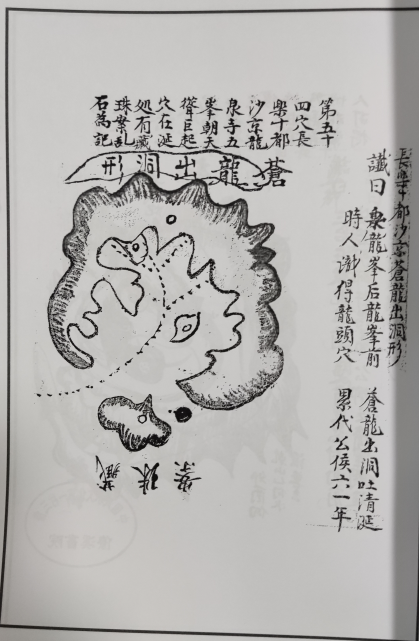 長樂十都沙京蒼龍出洞形
讖曰 龍峯后龍峯前 蒼龍出洞吐清涎
時人識得龍頭穴 累代公侯六一年
第五十
四穴長
樂十都
沙京龍
泉寺五
峯朝天
聳巨起
穴在涎
処有藏
珠案乱
石為記
蒼龍出洞形
案珠藏